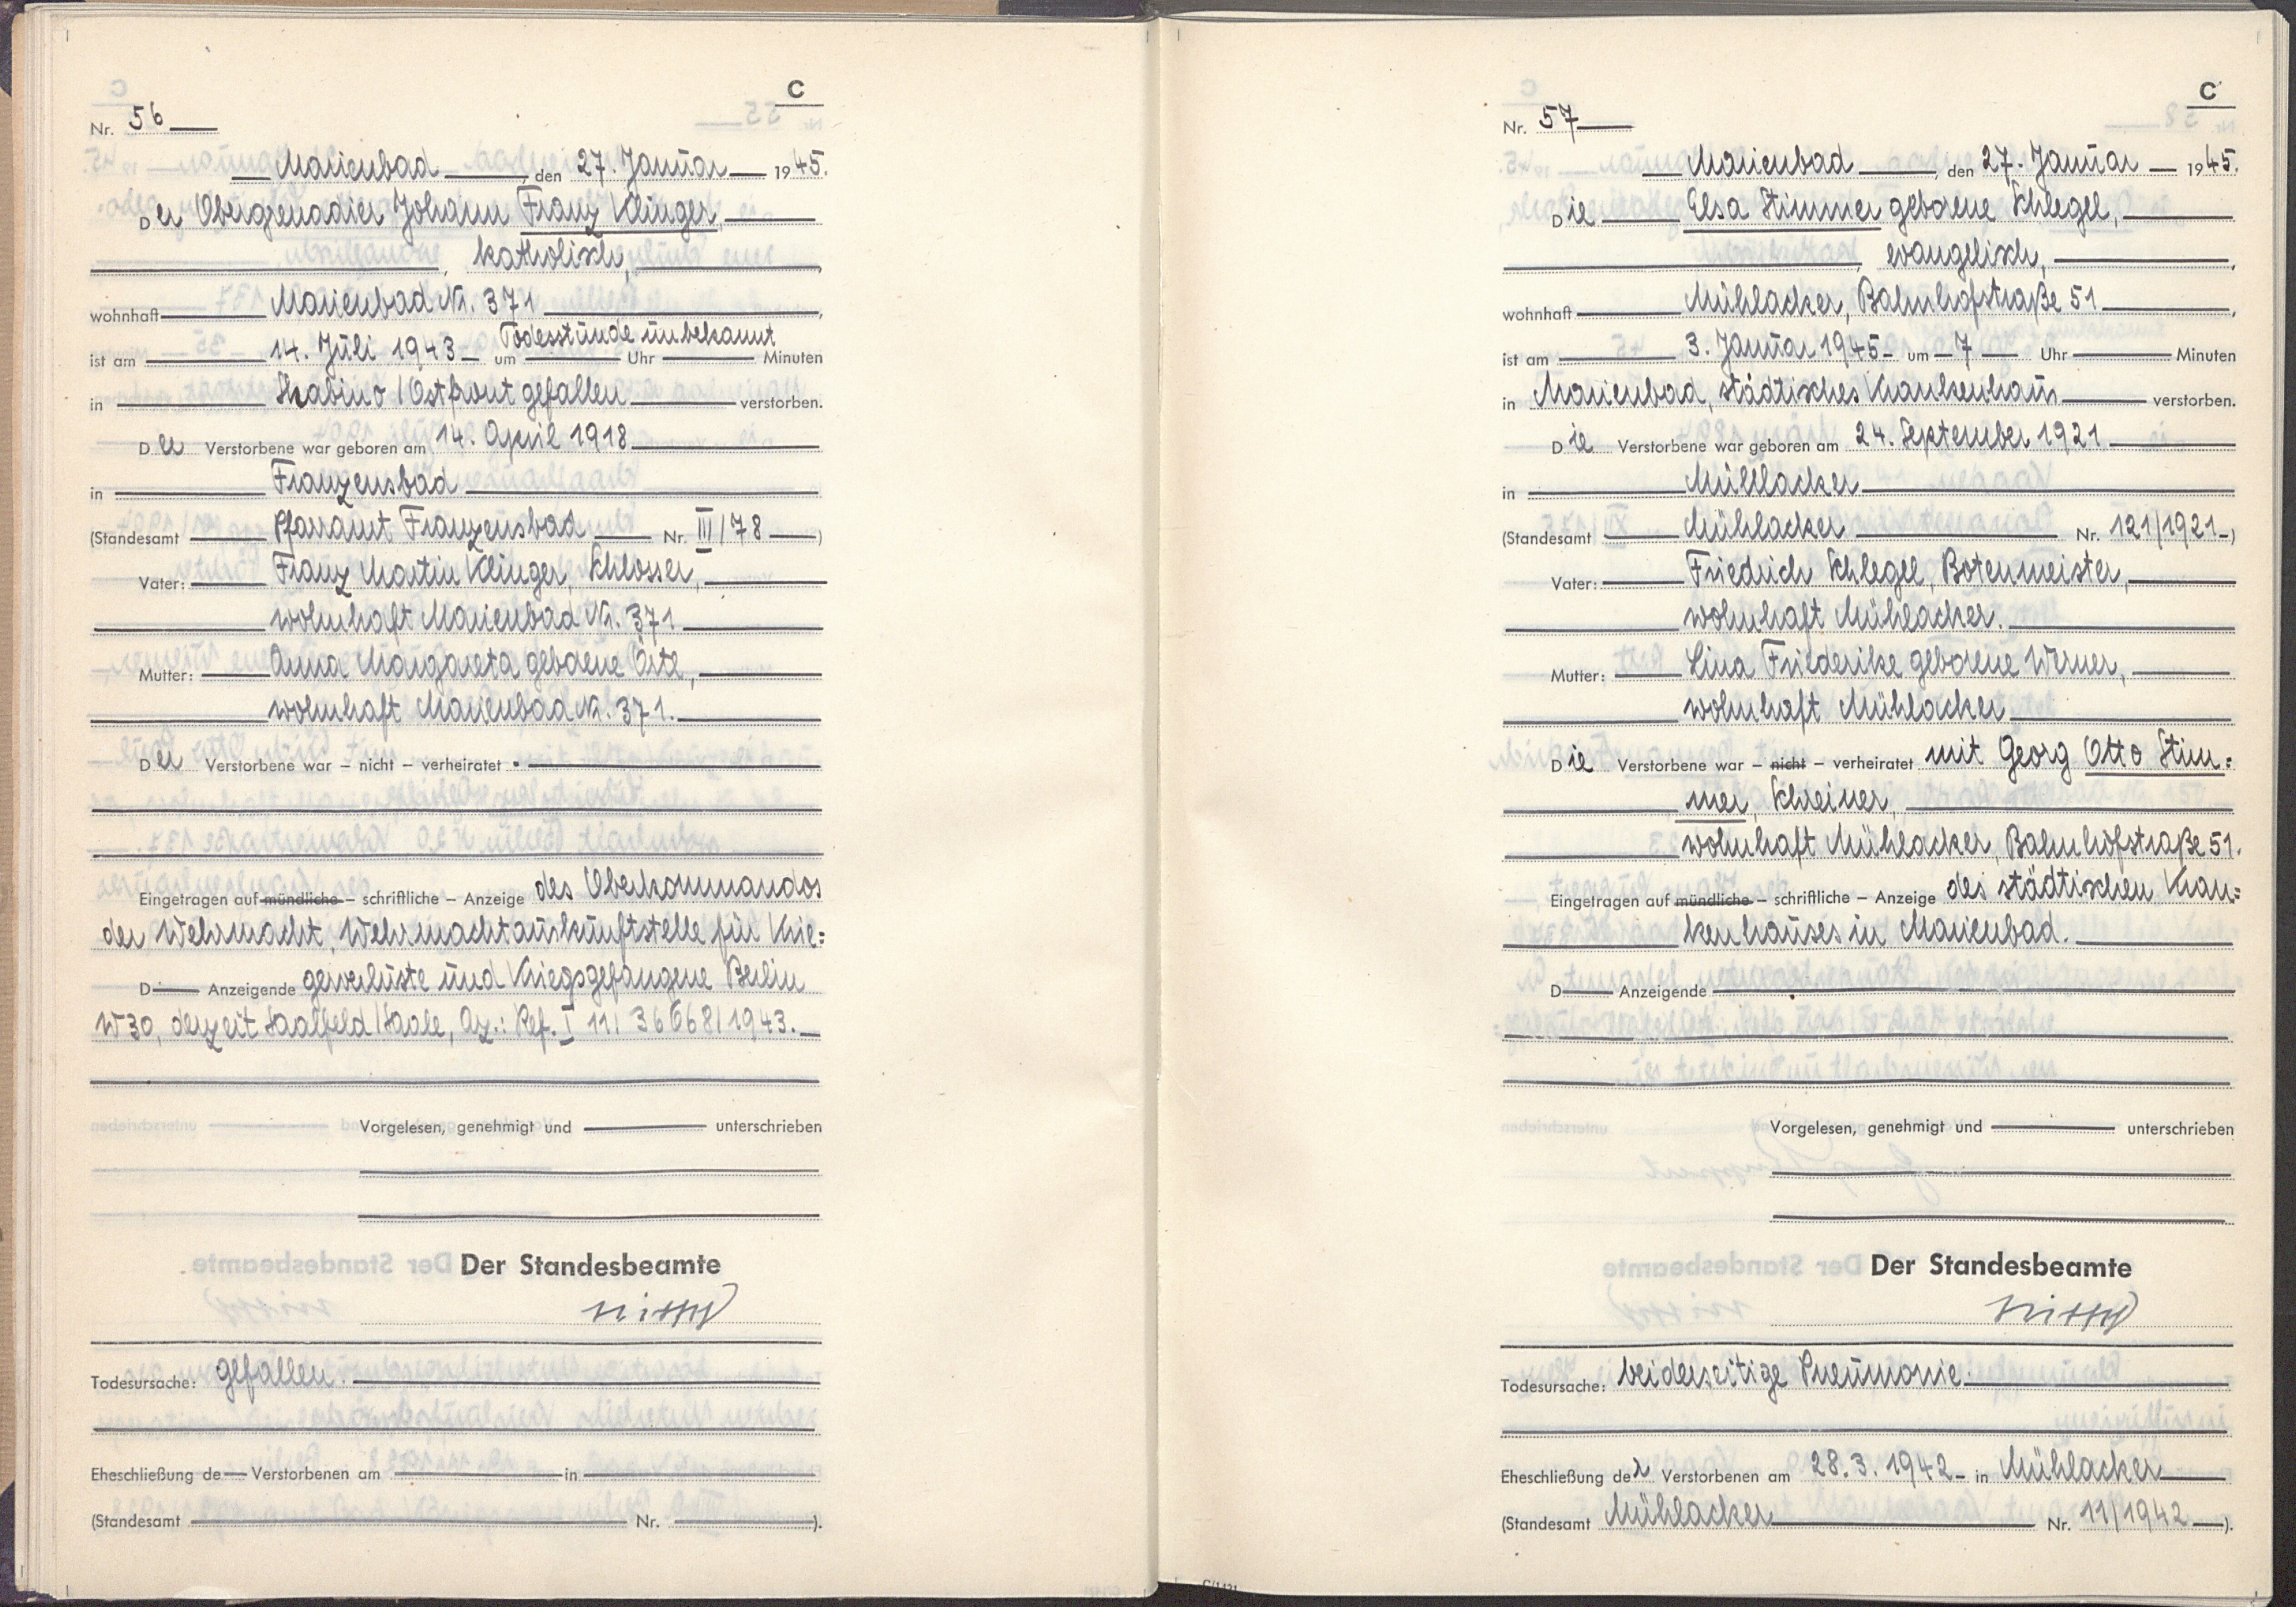 C
Nr. 56
Marienbad, den 27. Januar 1945.
Der Obergrenadier Johann Franz Klinger,
, katholisch,
wohnhaft Marienbad Nr. 371,
Todesstunde unbekannt
ist am 14. Juli 1943 um Uhr Minuten
in /Ostfront gefallen verstorben.
Der Verstorbene war geboren am 14. April 1918
in Franzensbad
(Standesamt Pfarramt Franzensbad Nr. III/78)
Vater: Franz Martin Klinger, Schlosser,
wohnhaft Marienbad Nr. 371
Mutter: Anna Margareta geborene
wohnhaft Marienbad Nr. 371.
Der Verstorbene war – nicht – verheiratet.
Eingetragen auf mündliche – schriftliche – Anzeige des Oberkommandos
der Wehrmacht, Wehrmachtauskunftstelle für Krie=
D Anzeigende gerverluste und Kriegsgefangene Berlin
W30, derzeit Saalfeld/Saale, Az.: Ref. I 11/ 36668/1943.
Vorgelesen, genehmigt und unterschrieben
Der Standesbeamte
Todesursache: gefallen.
Eheschließung de Verstorbenen am in
(Standesamt Nr. ).
C
Nr. 57
Marienbad, den 27. Januar 1945.
Die Elsa Stimmer geborene Schlegel,
, evangelisch,
wohnhaft Mühlacker, Bahnhofstraße 51,
ist am 3. Januar 1945 um 7 Uhr Minuten
in Marienbad, städtisches Krankenhaus verstorben.
Die Verstorbene war geboren am 24. September 1921
in Mühlacker
(Standesamt Mühlacker Nr. 121/1921)
Vater: Friedrich Schlegel, Botenmeister,
wohnhaft Mühlacker.
Mutter: Lina Friederike geborene Werner,
wohnhaft Mühlacker
Die Verstorbene war – nicht – verheiratet mit Georg Otto Stim=
mer, Schreiner,
wohnhaft Mühlacker, Bahnhofstraße 51.
Eingetragen auf mündliche – schriftliche – Anzeige des städtischen Kran=
kenhauses in Marienbad.
D Anzeigende
Vorgelesen, genehmigt und unterschrieben
Der Standesbeamte
Todesursache: beiderseitige Pneumonie.
Eheschließung der Verstorbenen am 28.3.1942 in Mühlacker
(Standesamt Mühlacker Nr. 11/1942).